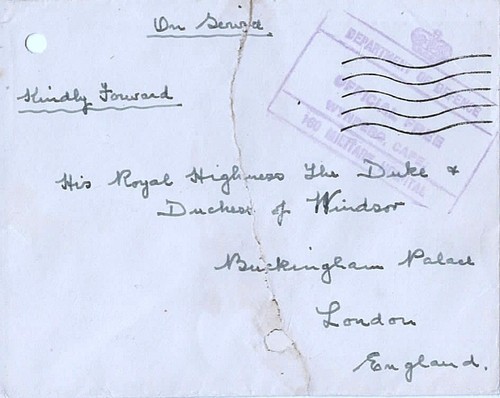 On Service.
DEPARTMENT OF DEFENCE
OFFICIAL FREE
WYNBERG, CAPE
160 MILITARY HOSPITAL
Kindly Forward
His Royal Highness The Duke &
Duchess of Windsor
Buckingham Palace
London
England.